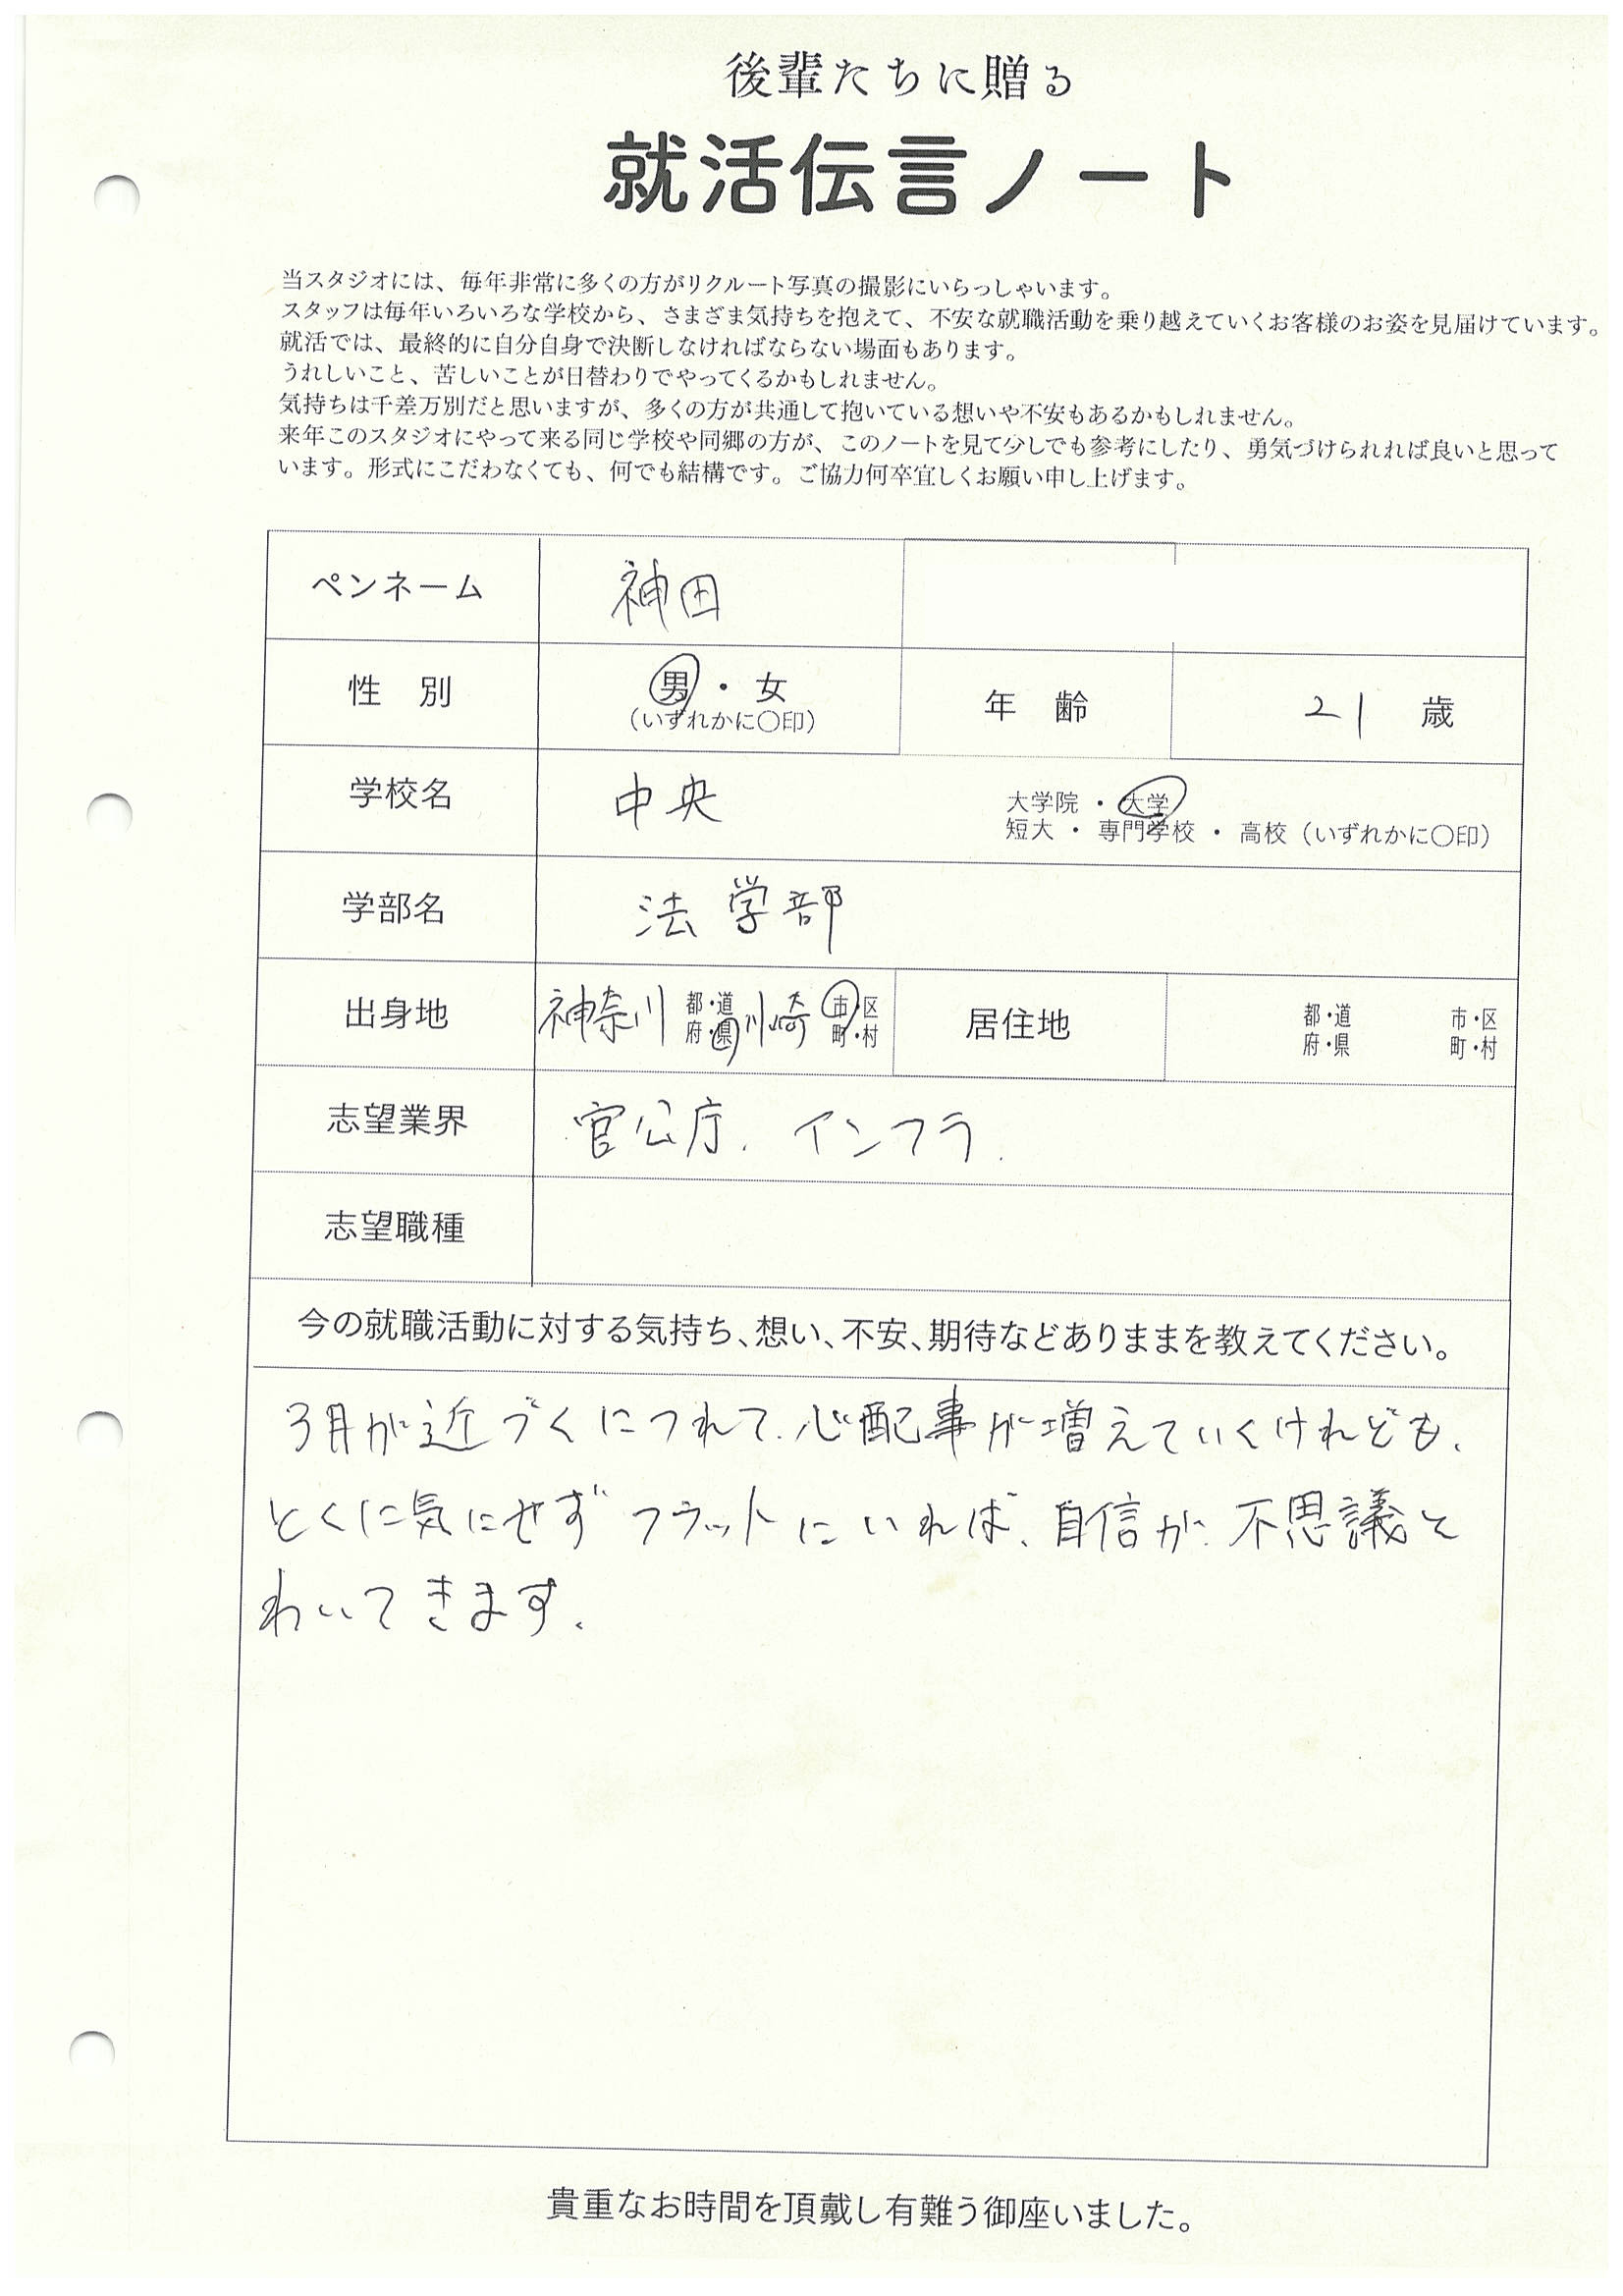 後輩たちに贈る
就活伝言ノート
当スタジオには、毎年非常に多くの方がリクルート写真の撮影にいらっしゃいます。
スタッフは毎年いろいろな学校から、さまざま気持ちを抱えて、不安な就職活動を乗り越えていくお客様のお姿を見届けています。
就活では、最終的に自分自身で決断しなければならない場面もあります。
うれしいこと、苦しいことが日替わりでやってくるかもしれません。
気持ちは千差万別だと思いますが、多くの方が共通して抱いている想いや不安もあるかもしれません。
来年このスタジオにやって来る同じ学校や同郷の方が、このノートを見て少しでも参考にしたり、勇気づけられれば良いと思って
います。形式にこだわなくても、何でも結構です。ご協力何卒宜しくお願い申し上げます。
ペンネーム 神田
性 別 男・女 年 齢 21 歳
(いずれかに〇印)
学校名 中央 大学院・大学
短大・専門学校・高校(いずれかに〇印)
学部名 法学部
出身地 神奈川 都・道 川崎 市・区 居住地 都・道 市・区
府・県 町・村 府・県 町・村
志望業界 官公庁. インフラ.
志望職種
今の就職活動に対する気持ち、想い、不安、期待などありままを教えてください。
3月が近づくにつれて、心配事が増えていくけれども、
とくに気にせずフラットにいれば、自信が、不思議と
わいてきます。
貴重なお時間を頂戴し有難う御座いました。